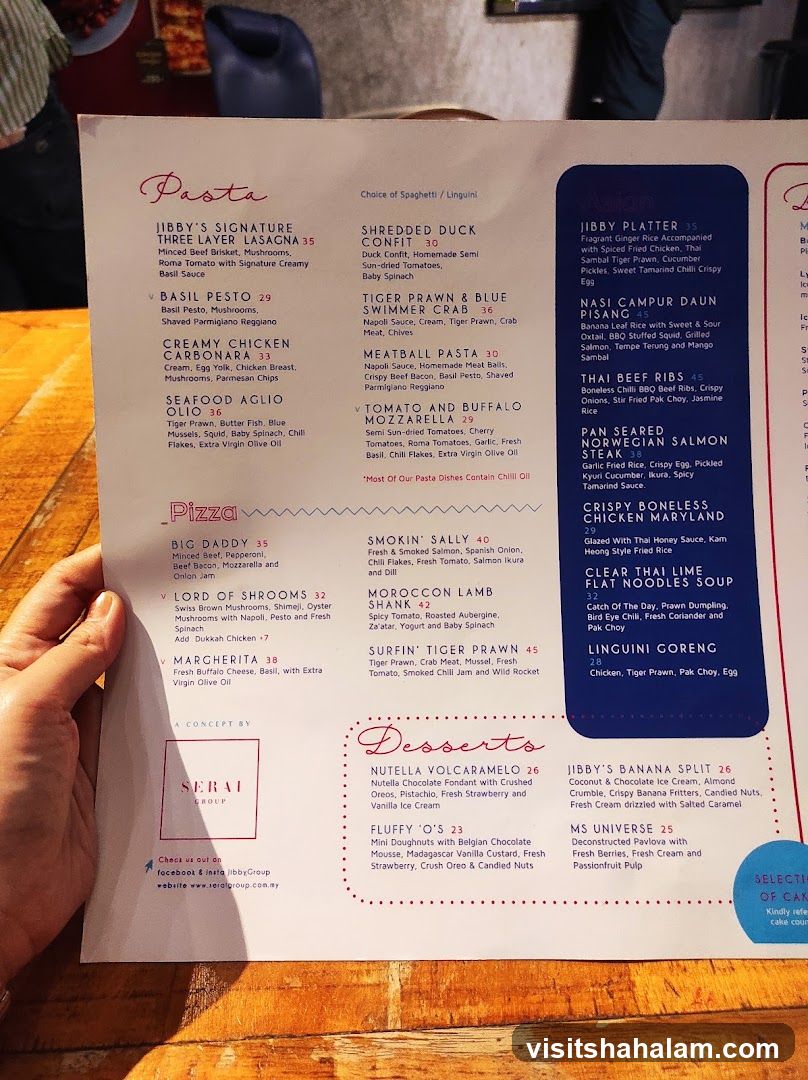 Pasta
Choice of Spaghetti / Linguini
JIBBY'S SIGNATURE
THREE LAYER LASAGNA 35
Minced Beef Brisket, Mushrooms,
Roma Tomato with Signature Creamy
Basil Sauce
V BASIL PESTO 29
Basil Pesto, Mushrooms,
Shaved Parmigiano Reggiano
CREAMY CHICKEN
CARBONARA 33
Cream, Egg Yolk, Chicken Breast,
Mushrooms, Parmesan Chips
SEAFOOD AGLIO
OLIO 36
Tiger Prawn, Butter Fish, Blue
Mussels, Squid, Baby Spinach, Chili
Flakes, Extra Virgin Olive Oil
SHREDDED DUCK
CONFIT 30
Duck Confit, Homemade Semi
Sun-dried Tomatoes,
Baby Spinach
TIGER PRAWN & BLUE
SWIMMER CRAB 36
Napoli Sauce, Cream, Tiger Prawn, Crab
Meat, Chives
MEATBALL PASTA 30
Napoli Sauce, Homemade Meat Balls,
Crispy Beef Bacon, Basil Pesto, Shaved
Parmigiano Reggiano
V TOMATO AND BUFFALO
MOZZARELLA 29
Semi Sun-dried Tomatoes, Cherry
Tomatoes, Roma Tomatoes, Garlic, Fresh
Basil, Chili Flakes, Extra Virgin Olive Oil
*Most Of Our Pasta Dishes Contain Chilli Oil
Pizza
BIG DADDY 35
Minced Beef, Pepperoni,
Beef Bacon, Mozzarella and
Onion Jam
V LORD OF SHROOMS 32
Swiss Brown Mushrooms, Shimeji, Oyster
Mushrooms with Napoli, Pesto and Fresh
Spinach
Add: Dukkah Chicken +7
V MARGHERITA 38
Fresh Buffalo Cheese, Basil, with Extra
Virgin Olive Oil
SMOKIN' SALLY 40
Fresh & Smoked Salmon, Spanish Onion,
Chili Flakes, Fresh Tomato, Salmon Ikura
and Dill
MOROCCON LAMB
SHANK 42
Spicy Tomato, Roasted Aubergine,
Za'atar, Yogurt and Baby Spinach
SURFIN' TIGER PRAWN 45
Tiger Prawn, Crab Meat, Mussel, Fresh
Tomato, Smoked Chili Jam and Wild Rocket
JIBBY PLATTER 35
Fragrant Ginger Rice Accompanied
with Spiced Fried Chicken, Thai
Sambal Tiger Prawn, Cucumber
Pickles, Sweet Tamarind Chilli Crispy
Egg
NASI CAMPUR DAUN
PISANG 45
Banana Leaf Rice with Sweet & Sour
Oxtail, BBQ Stuffed Squid, Grilled
Salmon, Tempe Terung and Mango
Sambal
THAI BEEF RIBS 45
Boneless Chilli BBQ Beef Ribs, Crispy
Onions, Stir Fried Pak Choy, Jasmine
Rice
PAN SEARED
NORWEGIAN SALMON
STEAK 38
Garlic Fried Rice, Crispy Egg, Pickled
Kyuri Cucumber, Ikura, Spicy
Tamarind Sauce.
CRISPY BONELESS
CHICKEN MARYLAND
29
Glazed With Thai Honey Sauce, Kam
Heong Style Fried Rice
CLEAR THAI LIME
FLAT NOODLES SOUP
32
Catch Of The Day, Prawn Dumpling,
Bird Eye Chili, Fresh Coriander and
Pak Choy
LINGUINI GORENG
28
Chicken, Tiger Prawn, Pak Choy, Egg
Desserts
NUTELLA VOLCARAMELO 26
Nutella Chocolate Fondant with Crushed
Oreos, Pistachio, Fresh Strawberry and
Vanilla Ice Cream
FLUFFY 'O'S 23
Mini Doughnuts with Belgian Chocolate
Mousse, Madagascar Vanilla Custard, Fresh
Strawberry, Crush Oreo & Candied Nuts
JIBBY'S BANANA SPLIT 26
Coconut & Chocolate Ice Cream, Almond
Crumble, Crispy Banana Fritters, Candied Nuts,
Fresh Cream drizzled with Salted Caramel
MS UNIVERSE 25
Deconstructed Pavlova with
Fresh Berries, Fresh Cream and
Passionfruit Pulp
A CONCEPT BY
SERAI
GROUP
Check us out on
facebook & insta JibbyGroup
website www.seraigroup.com.my
SELECTI
OF CAK
Kindly refe
cake coun
visitshahalam.com